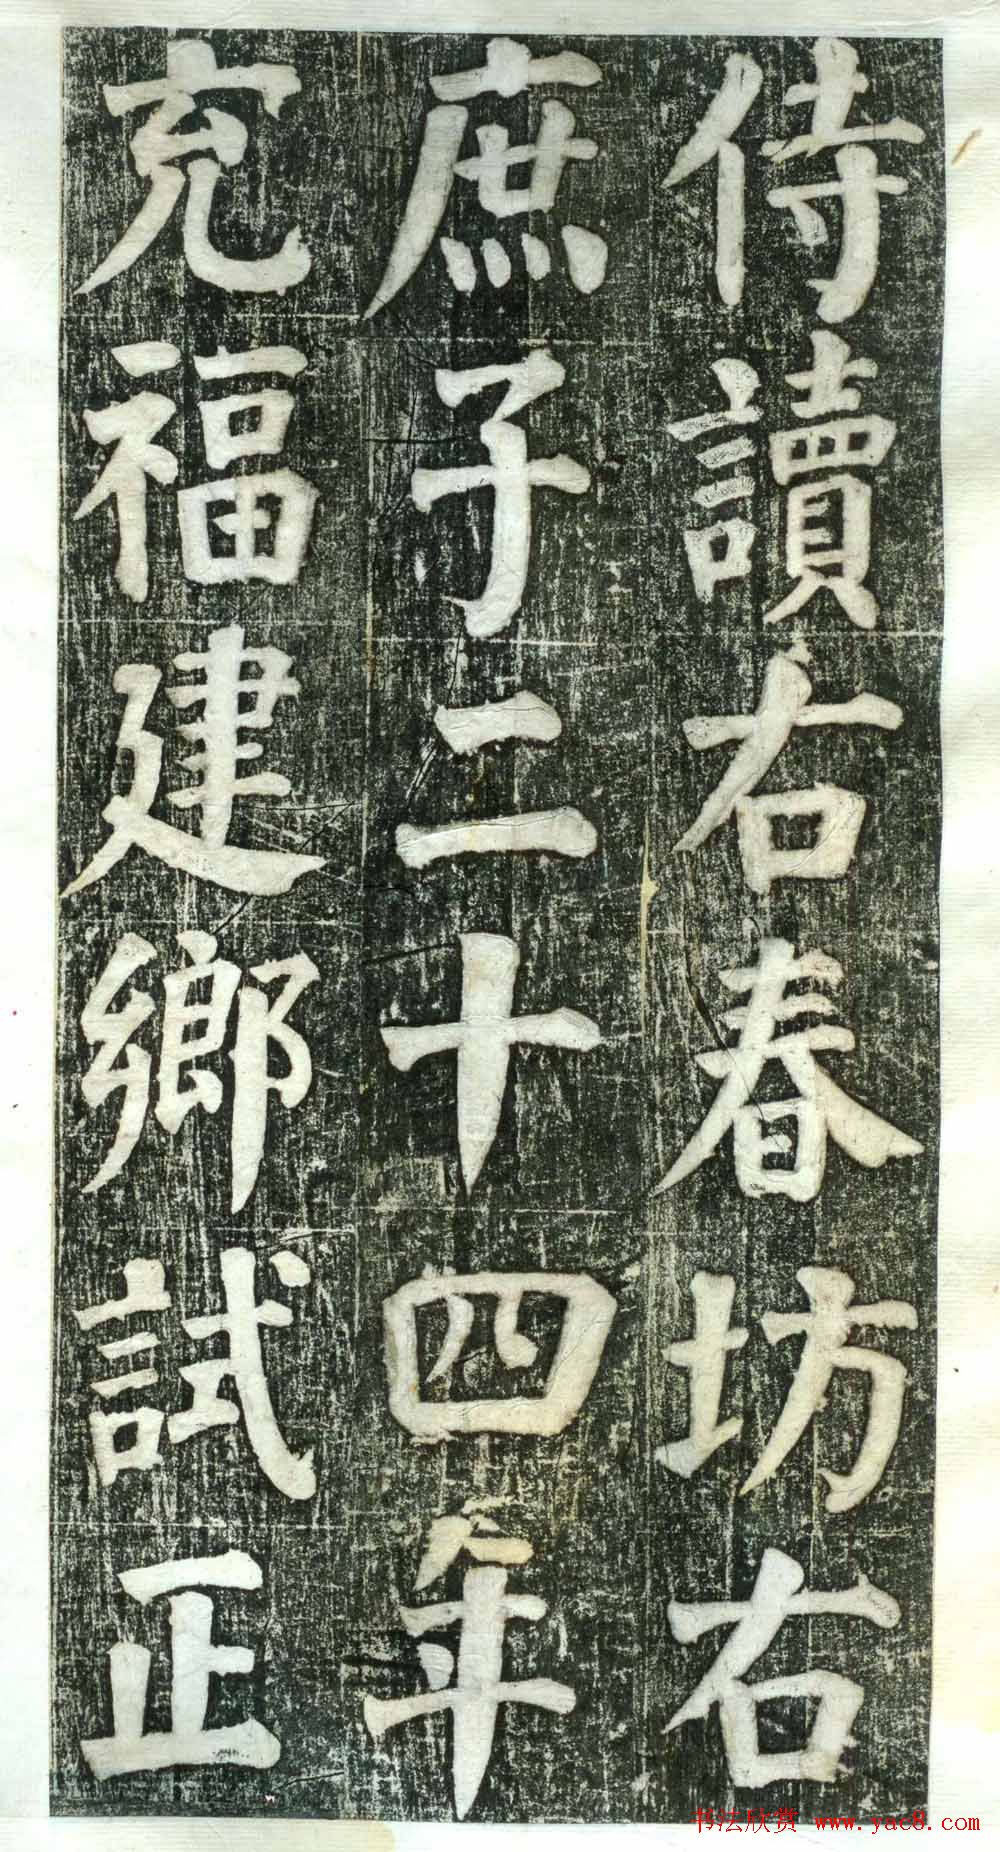 侍讀右春坊右
庶子二十四年
充福建鄉試正
书法欣赏 www.yac8.com